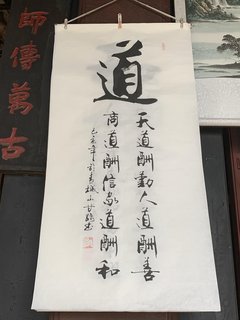 師傳萬古
道
天道酬勤人道酬善
商道酬信家道酬和
己亥年青城山